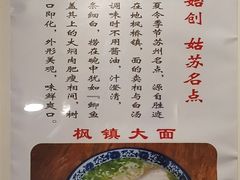 始创 姑苏名点
夏令季节苏州名点，源自胜迹
在地枫桥镇，面的卖相与白汤
调味时不用酱油，汁澄清，
条细白，捞在碗中犹如“鲫鱼
盖其上的大焖肉肥瘦相间，
口即化，外形美观，味鲜爽口。
枫镇大面